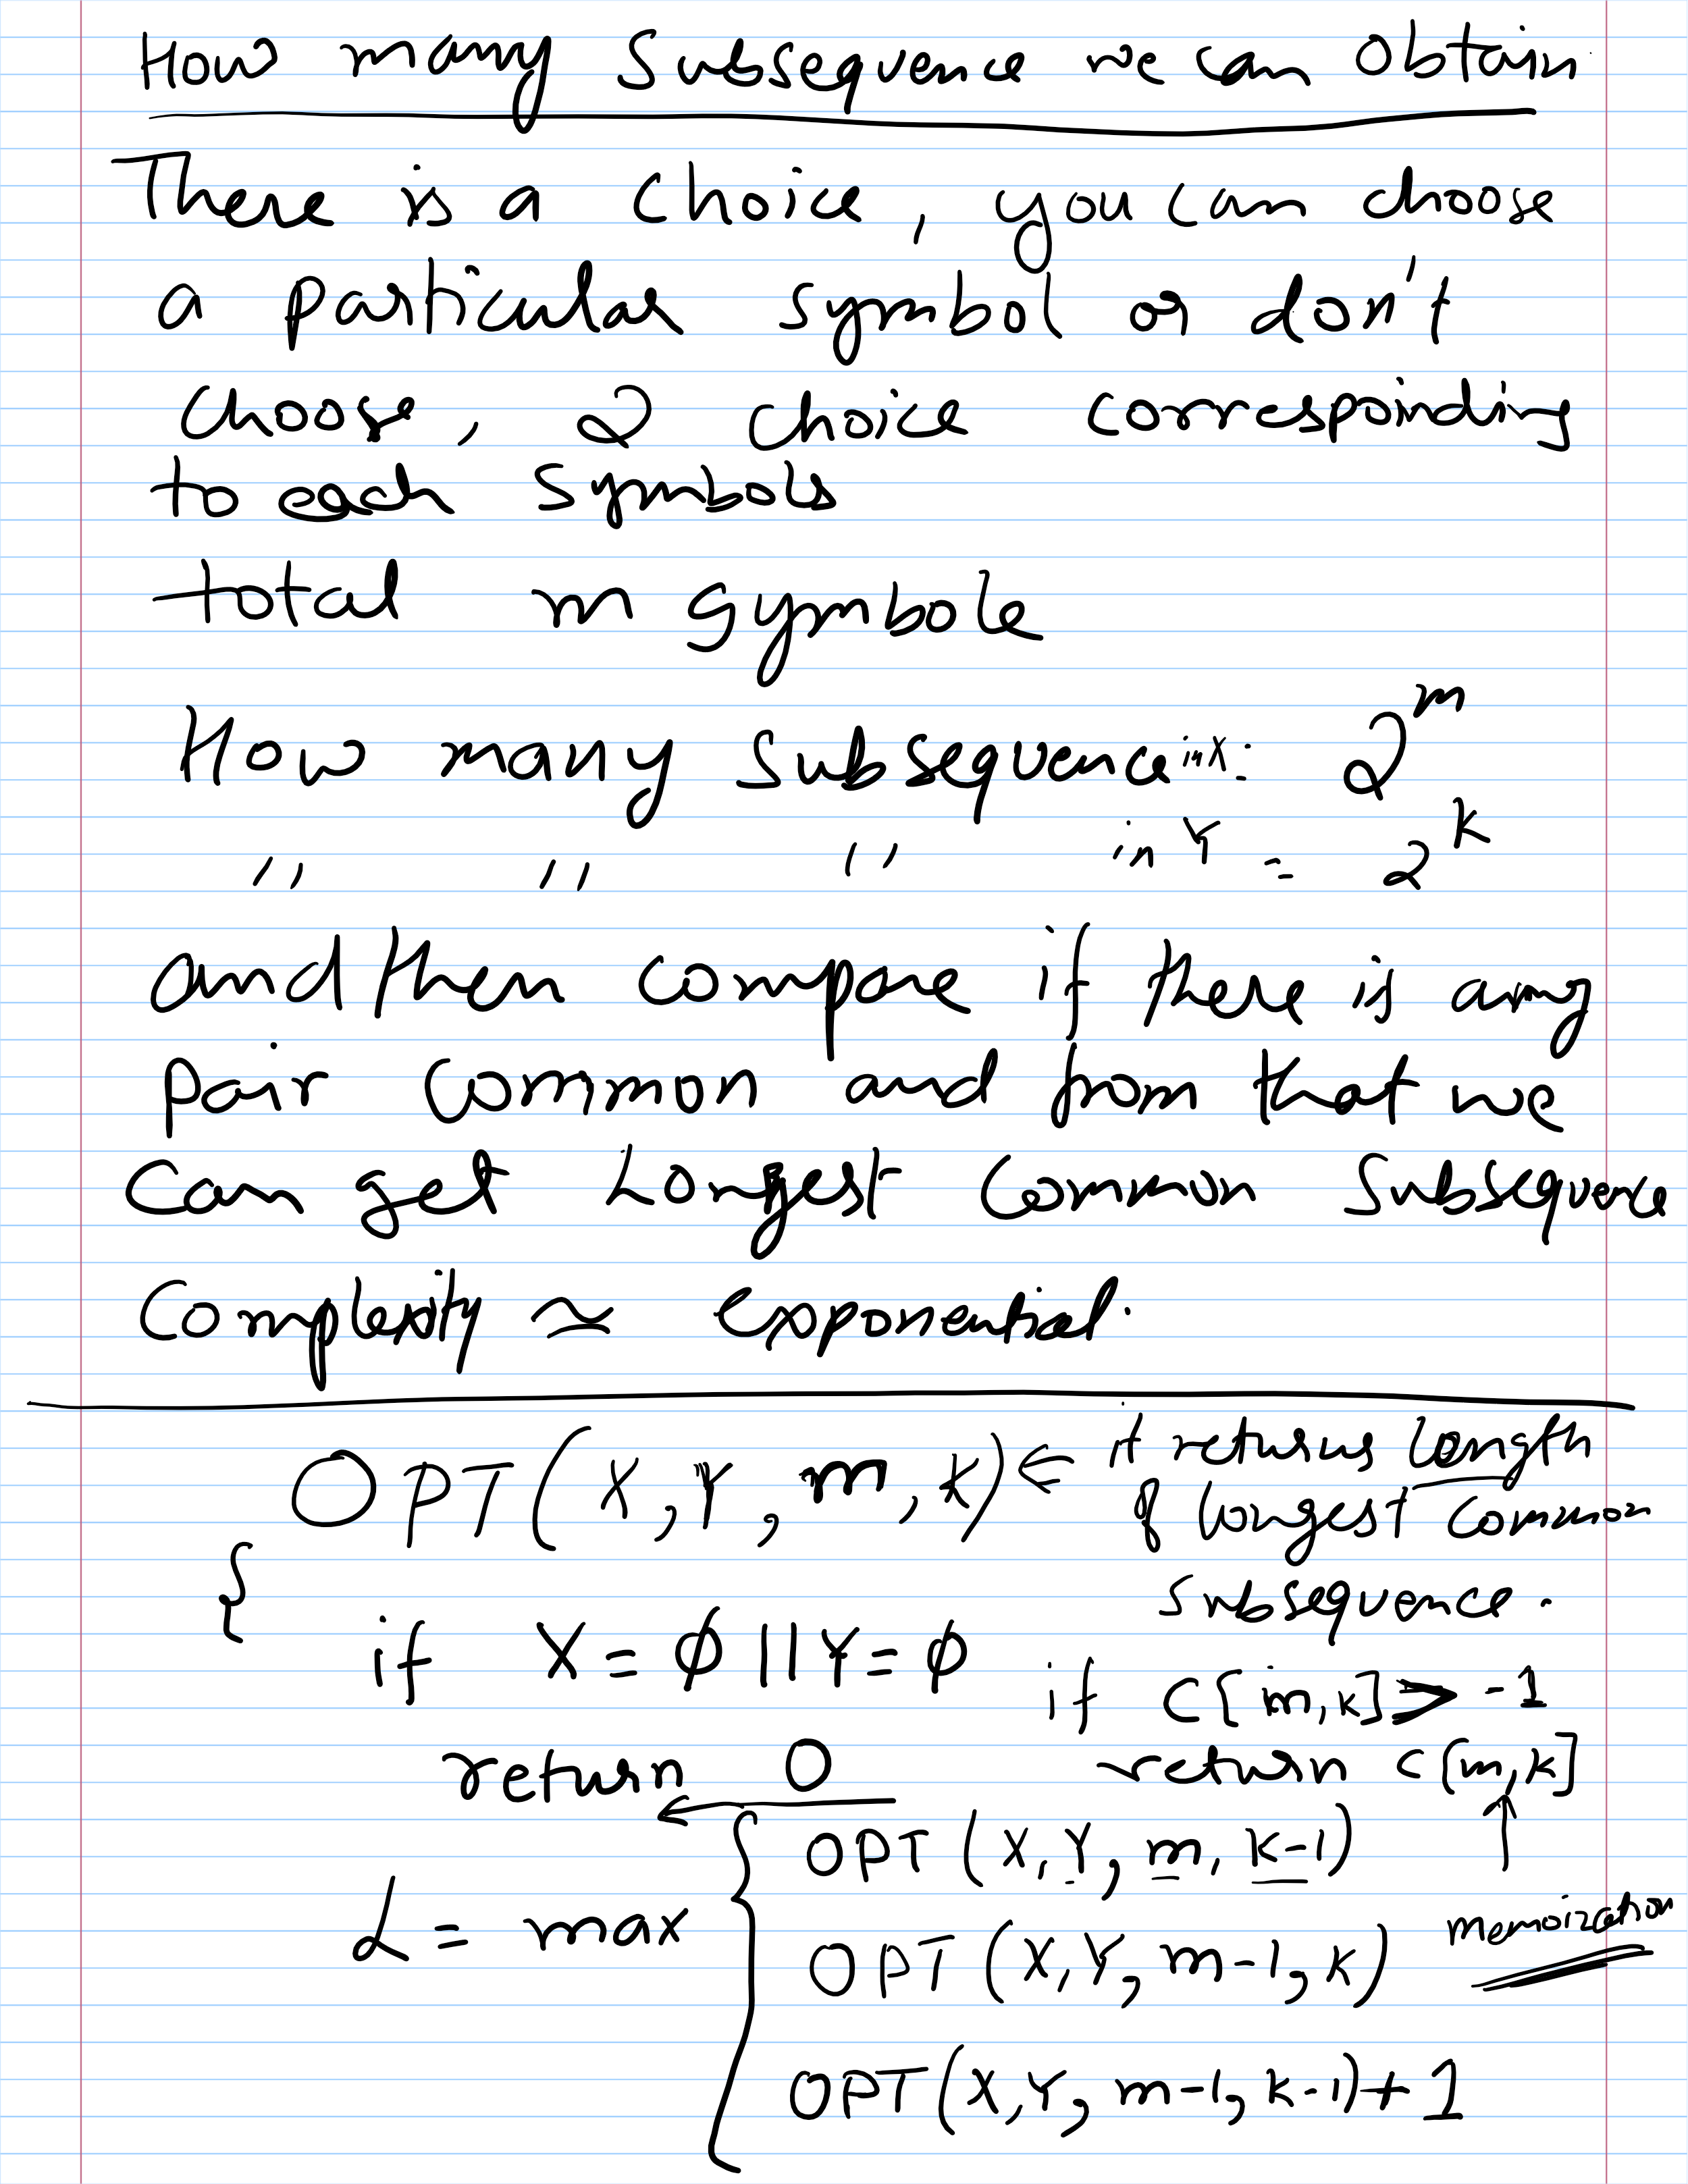 How many Subsequence we can Obtain
There is a choice, you can choose
a particular symbol or don't
choose, 2 choice correspoinding
to each symbols
total m symbole
How many subsequence in X: 2^m
" " " in Y = 2^k
and then compare if there is any
pair common and from that we
can get Longest Common Subsequence
Complexity ≃ exponential.
OPT(X,Y,m,k) ← it returns length
of longest common
subsequence.
{
if X = ϕ || Y = ϕ
return 0
if C[m,k] > -1
return C[m,k]
↑
memoization
L = max {
OPT(X,Y,m,k-1)
OPT(X,Y,m-1,k)
OPT(X,Y,m-1,k-1)+1